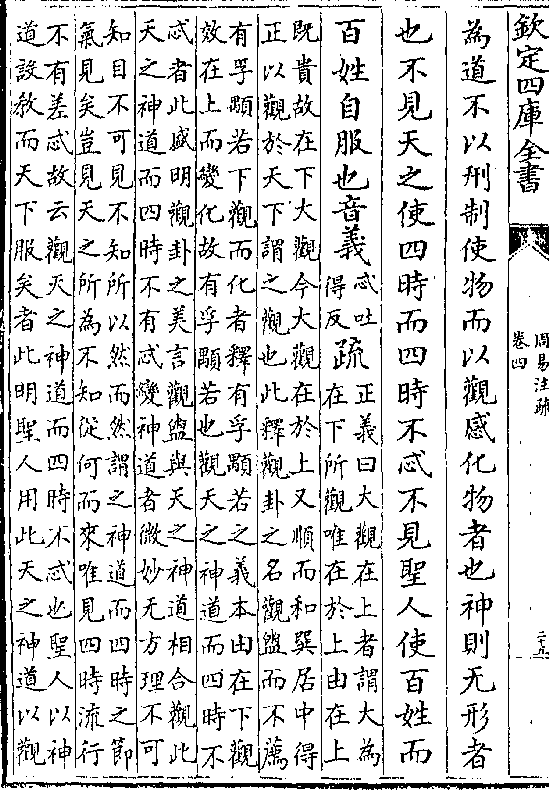 欽定四庫全書
周易注疏
卷四
為道不以刑制使物而以觀感化物者也神則无形者
也不見天之使四時而四時不忒不見聖人使百姓而
百姓自服也音義
忒吐
得反
疏
正義曰大觀在上者謂大為
在下所觀唯在於上由在上
既貴故在下大觀今大觀在於上又順而和巽居中得
正以觀於天下謂之觀也此釋觀卦之名觀盥而不薦
有孚顒若下觀而化者釋有孚顒若之義本由在下觀
效在上而變化故有孚顒若也觀天之神道而四時不
忒者此盛明觀卦之美言觀盥與天之神道相合觀此
天之神道而四時不有忒變神道者微妙无方理不可
知目不可見不知所以然而然謂之神道而四時之節
氣見矣豈見天之所為不知從何而來唯見四時流行
不有差忒故云觀天之神道而四時不忒也聖人以神
道設教而天下服矣者此明聖人用此天之神道以觀